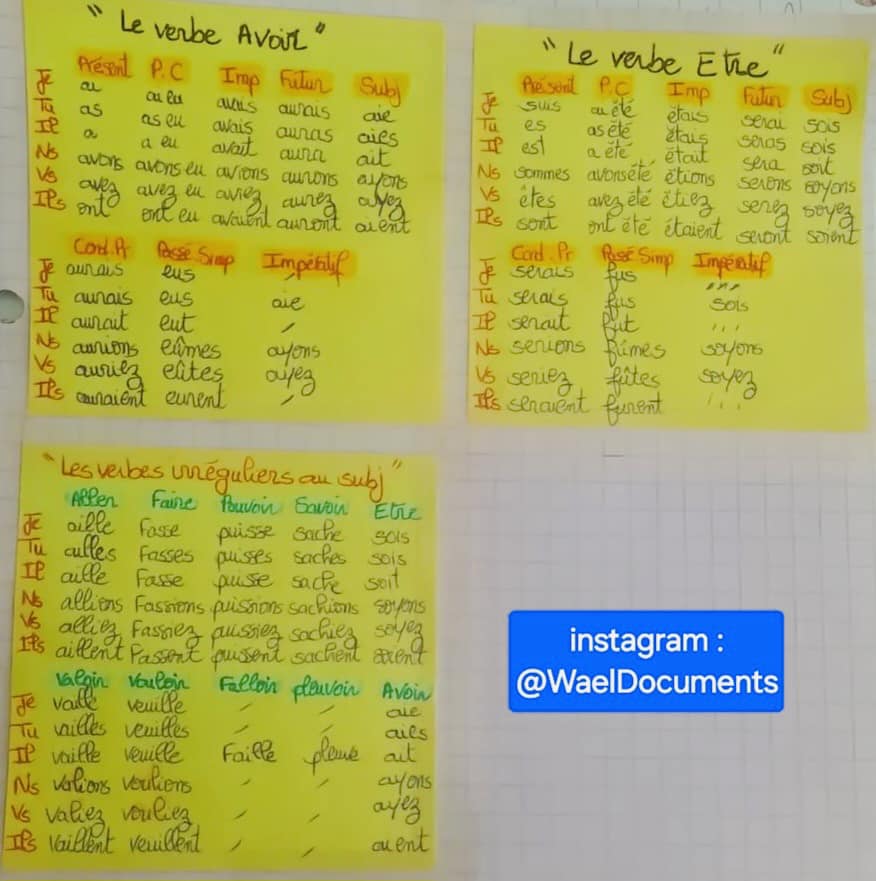 " Le verbe Avoir "
Présent P.C Imp Futur Subj
Je ai ai eu avais aurais aie
Tu as as eu avais auras aies
Il a a eu avait aura ait
Ns avons avons eu avions aurons ayons
Vs avez avez eu aviez aurez ayez
Ils ont ont eu avaient auront aient
Cond.Pr Passé Simp Impératif
Je aurais eus "
Tu aurais eus aie
Il aurait eut /
Ns aurions eûmes ayons
Vs auriez eûtes ayez
Ils auraient eurent /
" Le verbe Etre "
Présent P.C Imp Futur Subj
Je suis ai été étais serai sois
Tu es as été étais seras sois
Il est a été était sera soit
Ns sommes avons été étions serons soyons
Vs êtes avez été étiez serez soyez
Ils sont ont été étaient seront soient
Cond.Pr Passé Simp Impératif
Je serais fus " "
Tu serais fus sois
Il serait fut ' ' '
Ns serions fûmes soyons
Vs seriez fûtes soyez
Ils seraient furent ' ' '
"Les verbes irréguliers au subj"
Aller Faire Pouvoir Savoir Etre
Je aille Fasse puisse sache sois
Tu ailles Fasses puisses saches sois
Il aille Fasse puisse sache soit
Ns allions Fassions puissions sachions soyons
Vs alliez Fassiez puissiez sachiez soyez
Ils aillent Fassent puissent sachent soient
Valoir Vouloir Falloir pleuvoir Avoir
Je vaille veuille / / aie
Tu vailles veuilles / / aies
Il vaille veuille Faille pleuve ait
Ns valions voulions / / ayons
Vs valiez vouliez / / ayez
Ils vaillent veuillent / / aient
instagram :
@WaelDocuments